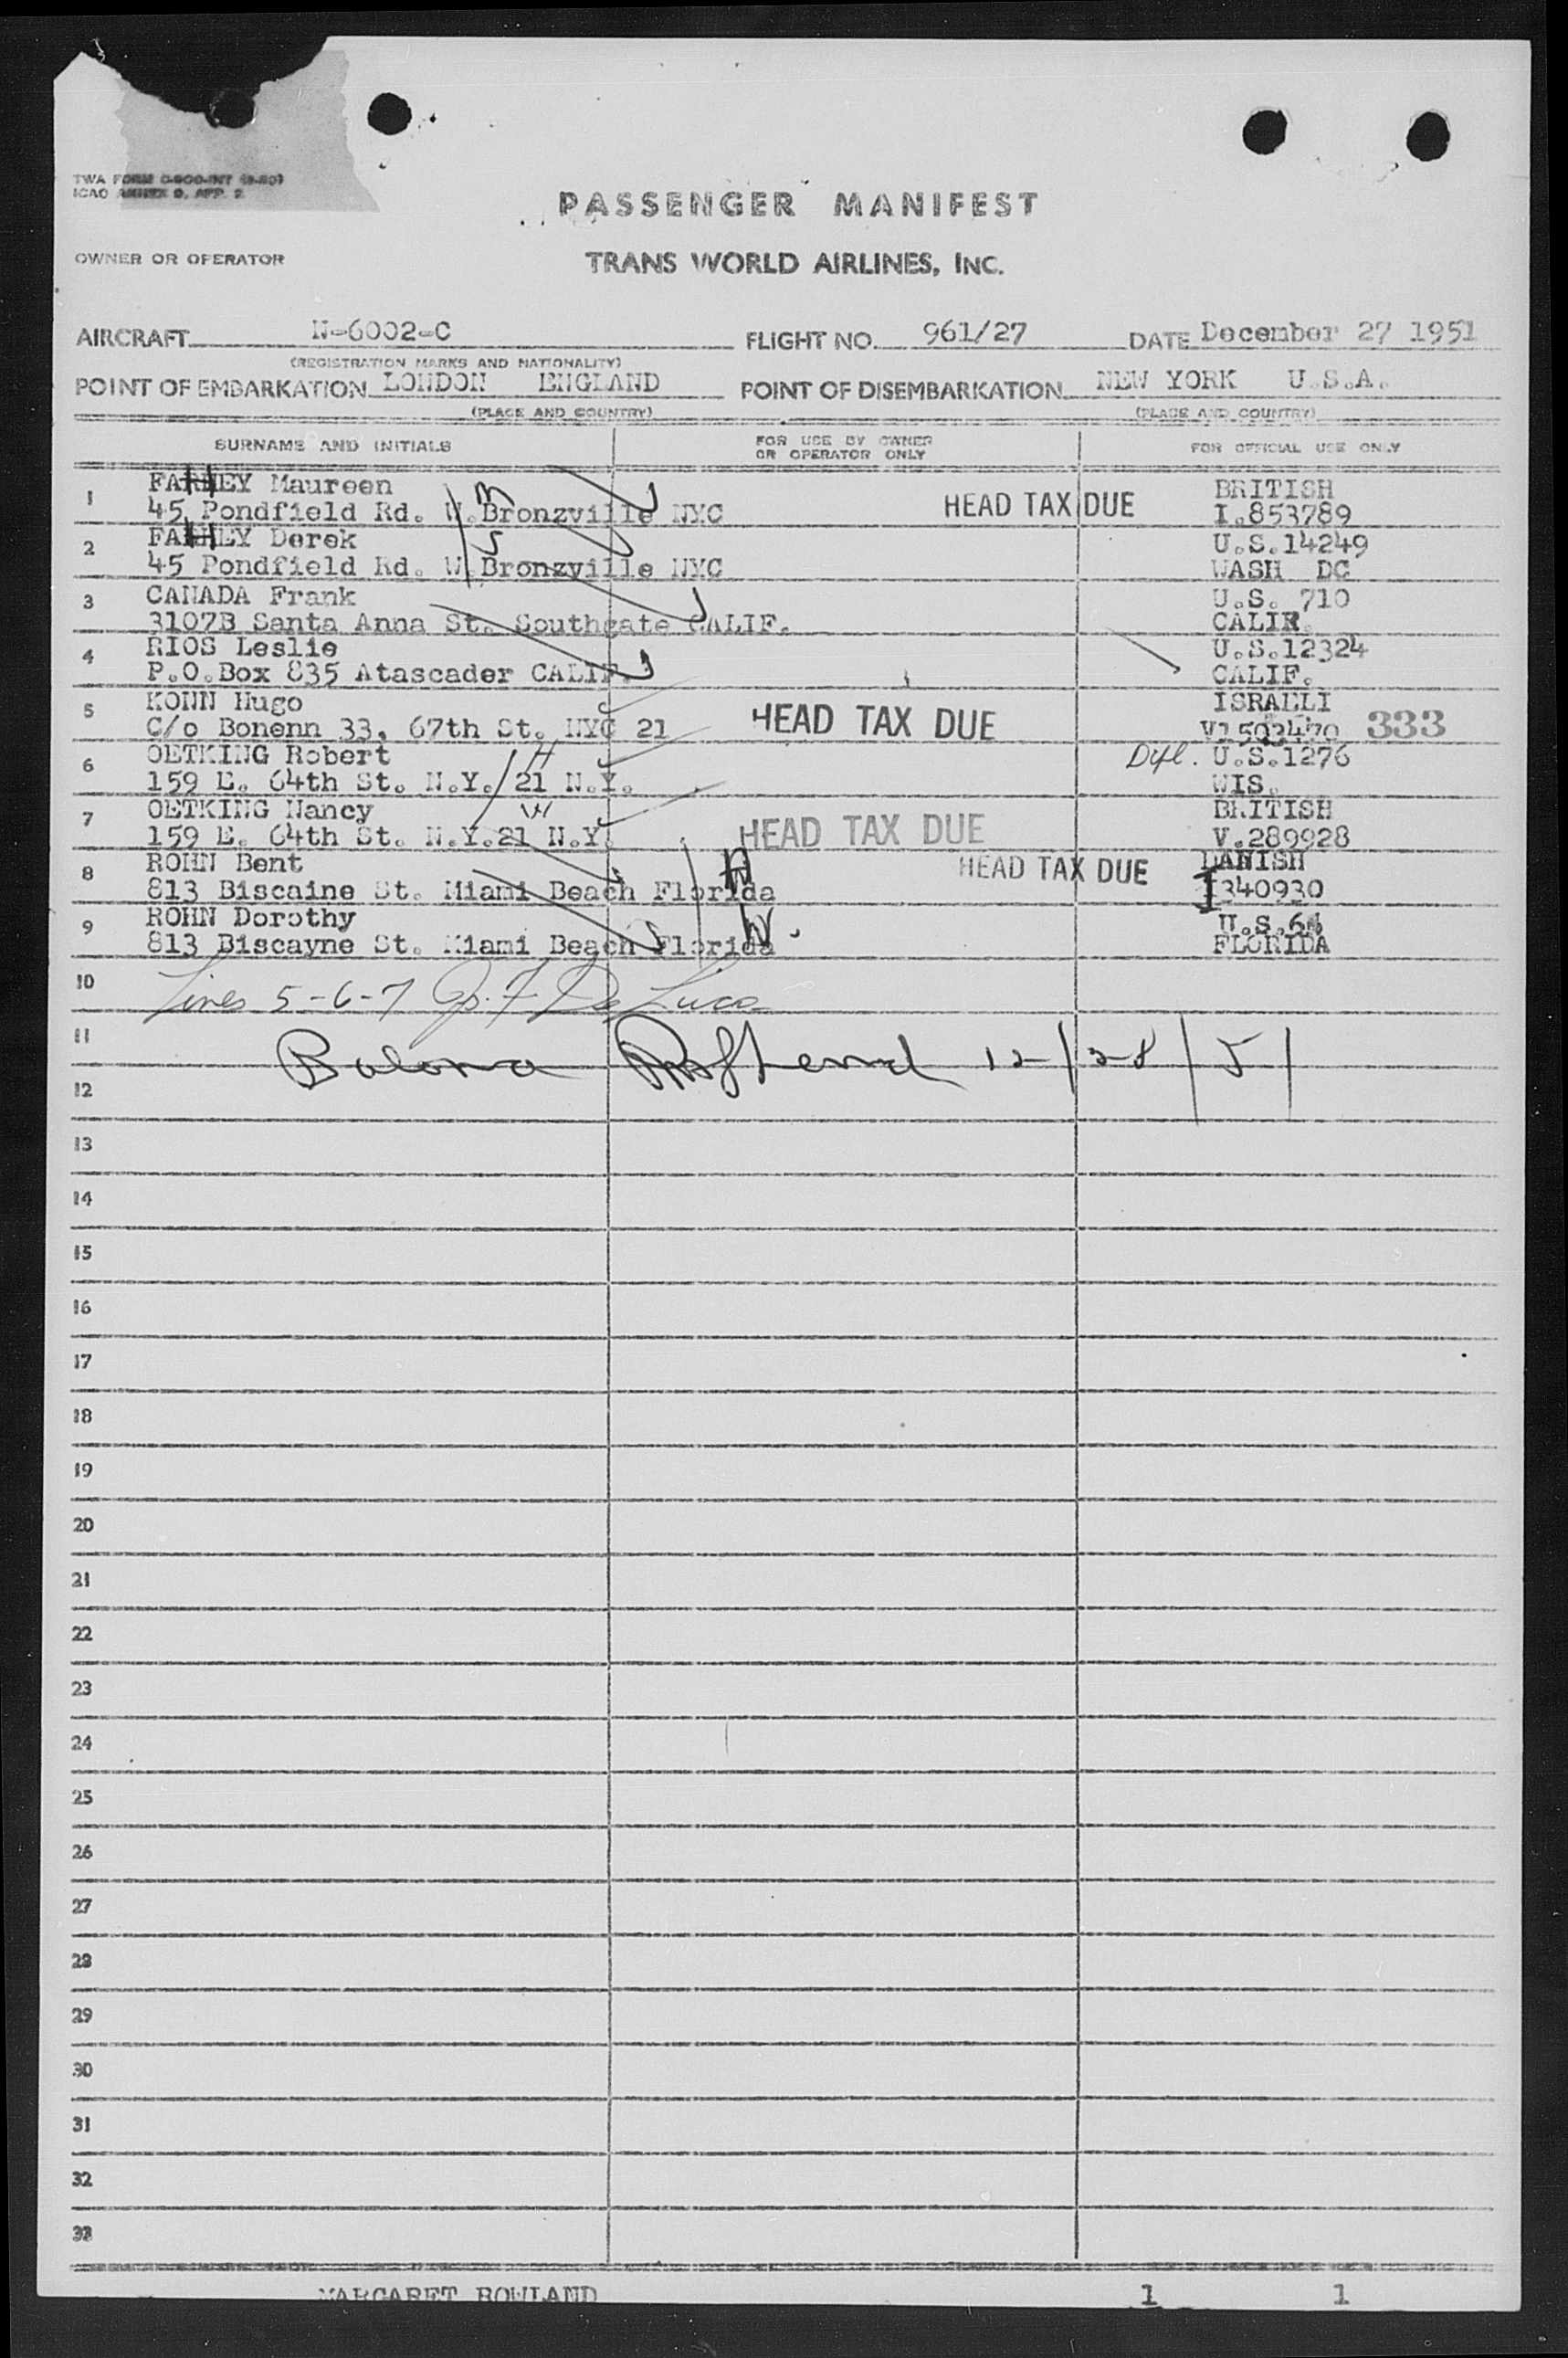 TWA FORM
ICAO ANNEX 9, APP. 2
PASSENGER MANIFEST
OWNER OR OPERATOR
TRANS WORLD AIRLINES, INC.
AIRCRAFT N-6002-C FLIGHT NO. 961/27 DATE December 27 1951
(REGISTRATION MARKS AND NATIONALITY)
POINT OF EMBARKATION LONDON ENGLAND POINT OF DISEMBARKATION NEW YORK U.S.A.
(PLACE AND COUNTRY) (PLACE AND COUNTRY)
SURNAME AND INITIALS FOR USE BY OWNER OR OPERATOR ONLY FOR OFFICIAL USE ONLY
1 Maureen BRITISH
45 Pondfield Rd. W. Bronzville NYC M HEAD TAX DUE I.853789
2 Derek U.S.14249
45 Pondfield Rd. W. Bronzville NYC S WASH DC
3 CANADA Frank U.S. 710
3107B Santa Anna St. Southgate CALIF. CALIF.
4 RIOS Leslie U.S.12324
P.O.Box 835 Atascader CALIF. CALIF.
5 KOHN Hugo ISRAELI
C/o Bonenn 33, 67th St. NYC 21 HEAD TAX DUE 333
6 OETKING Robert H U.S.1276
159 E. 64th St. N.Y. 21 N.Y. WIS.
7 OETKING Nancy W BRITISH
159 E. 64th St. N.Y.21 N.Y. HEAD TAX DUE V.289928
8 ROHN Bent HEAD TAX DUE DANISH
813 Biscaine St. Miami Beach Florida H I 340930
9 ROHN Dorothy U.S.64
813 Biscayne St. Miami Beach Florida W. FLORIDA
10 Lines 5-6-7 De Luca
11 12/28/51
12
13
14
15
16
17
18
19
20
21
22
23
24
25
26
27
28
29
30
31
32
33
MARGARET ROWLAND 1 1